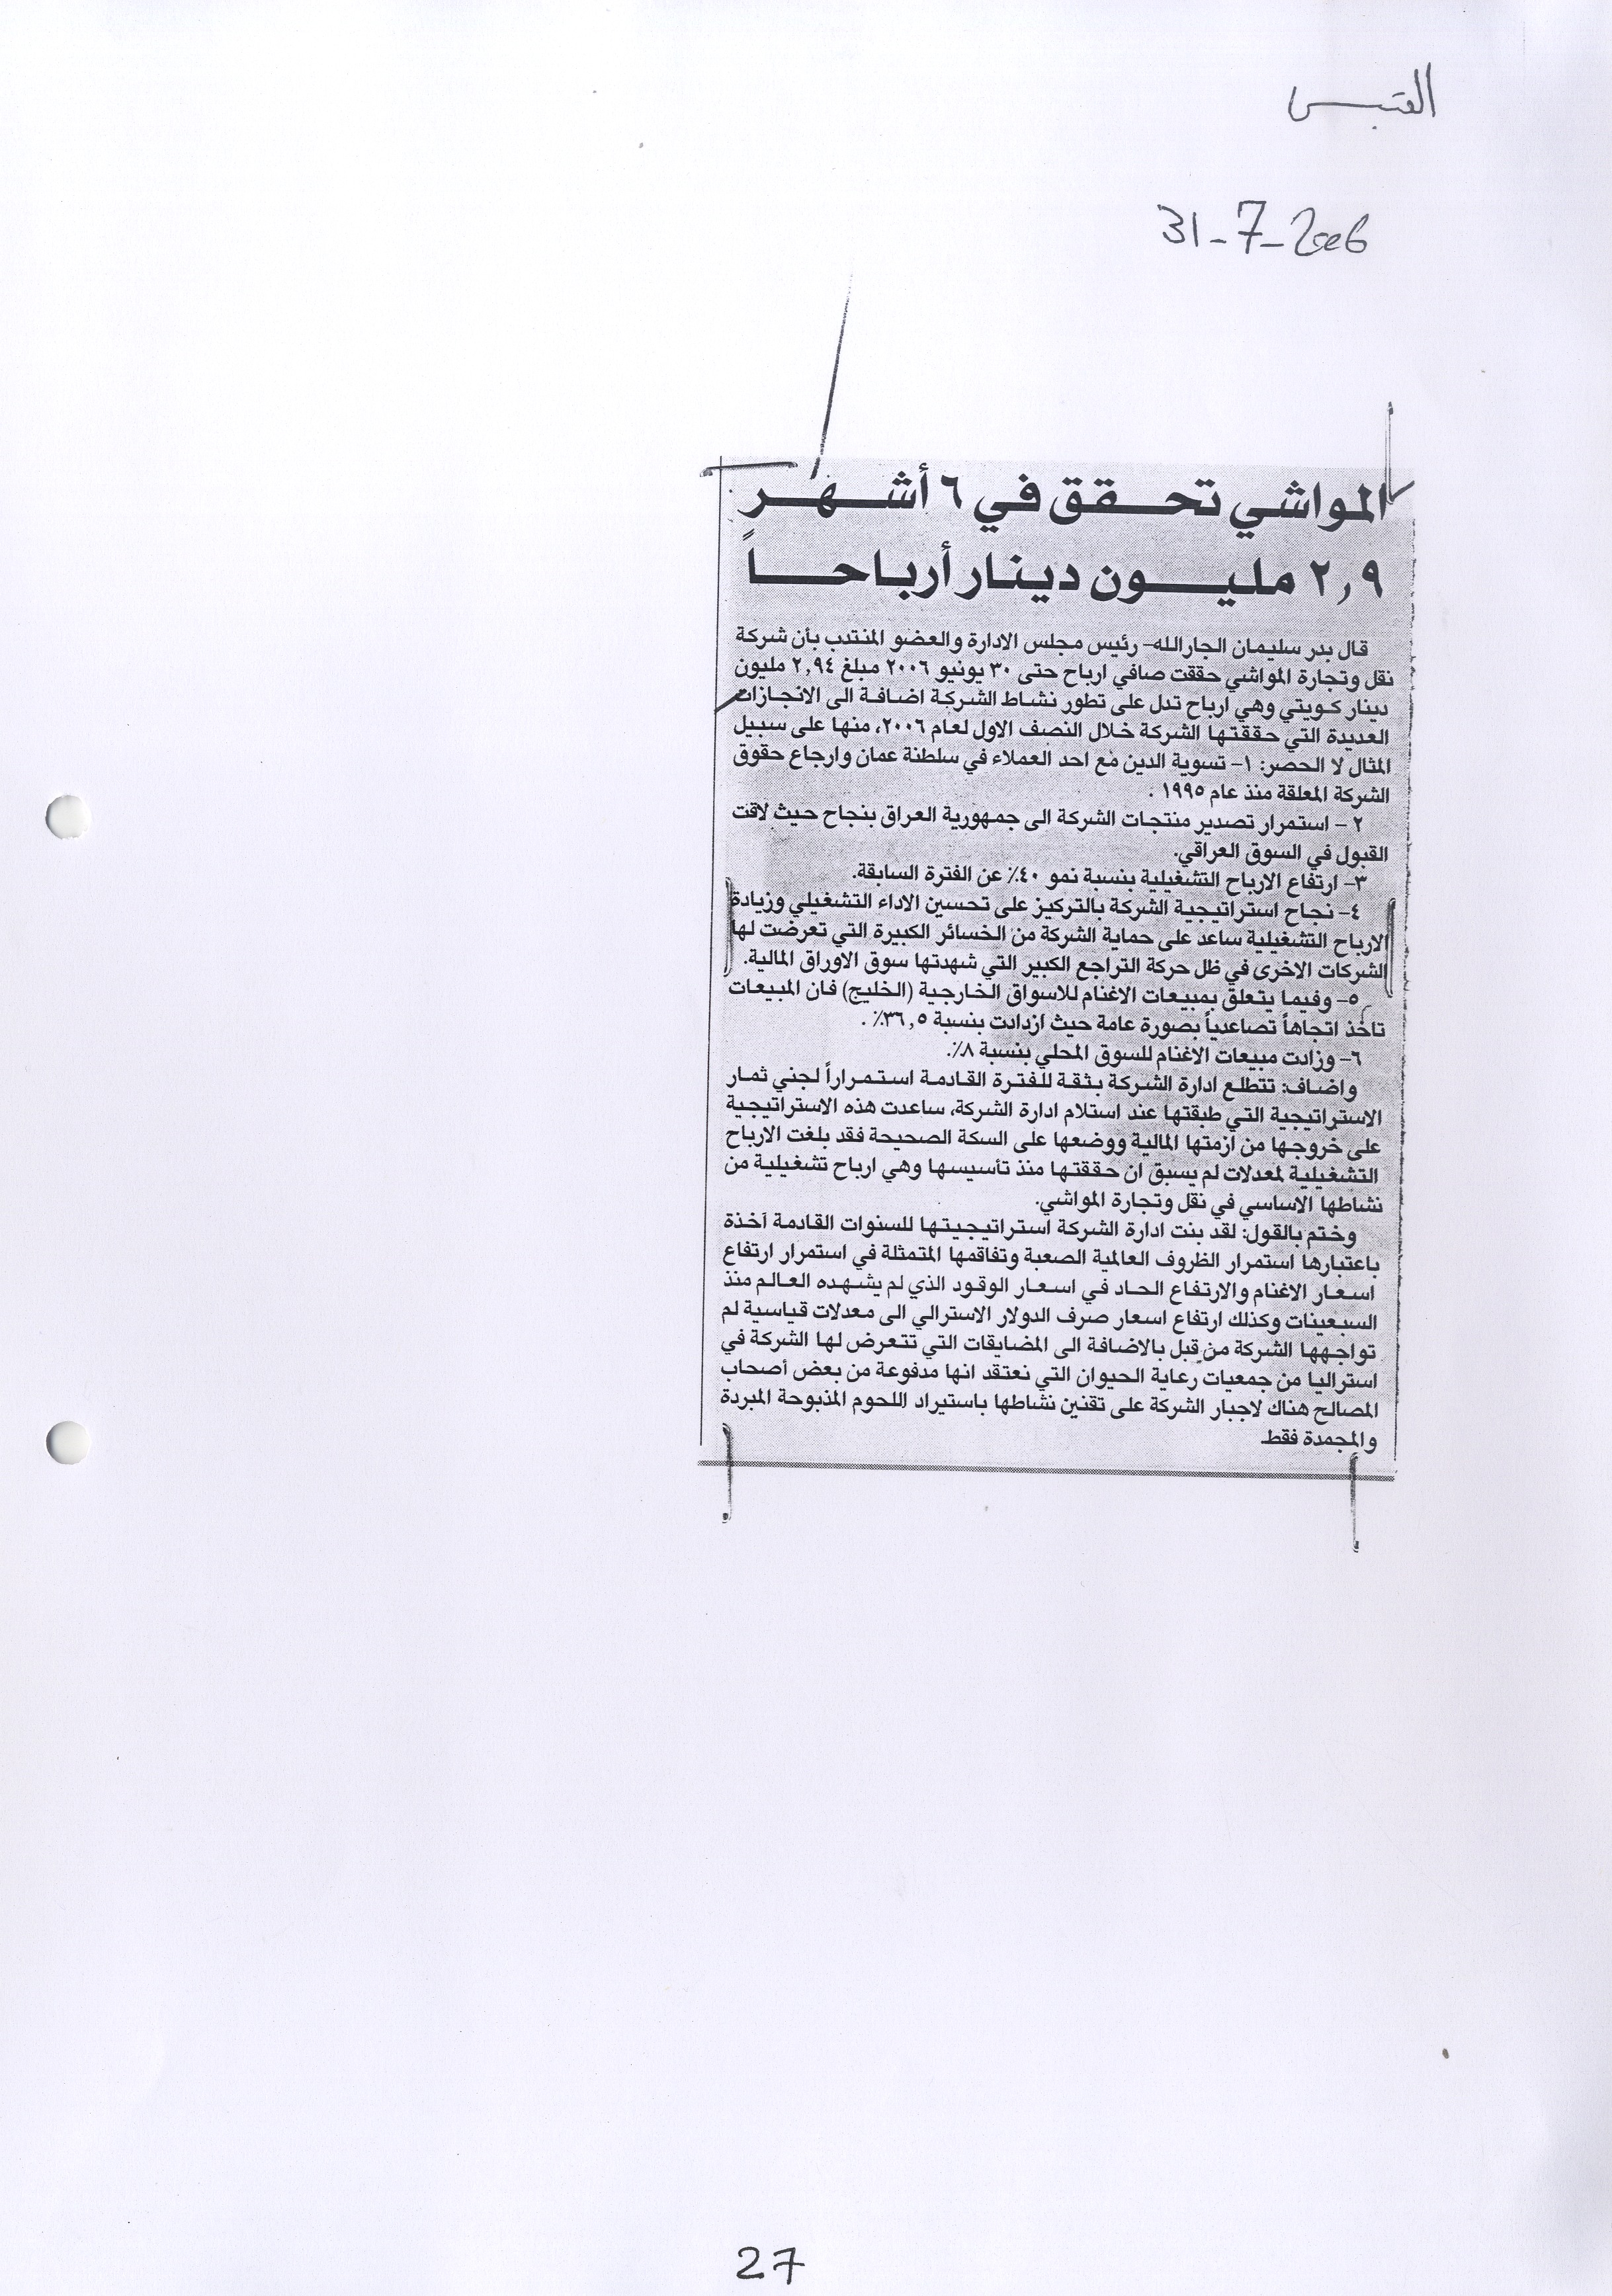 القبس
31-7-2006
المواشي تحقق في ٦ أشهر
٢,٩ مليون دينار أرباحاً
قال بدر سليمان الجارالله- رئيس مجلس الادارة والعضو المنتدب بأن شركة
نقل وتجارة المواشي حققت صافي ارباح حتى ٣٠ يونيو ٢٠٠٦ مبلغ ٢,٩٤ مليون
دينار كويتي وهي ارباح تدل على تطور نشاط الشركة اضافة الى الانجازات
العديدة التي حققتها الشركة خلال النصف الاول لعام ٢٠٠٦، منها على سبيل
المثال لا الحصر: ١- تسوية الدين مع احد العملاء في سلطنة عمان وارجاع حقوق
الشركة المعلقة منذ عام ١٩٩٥ .
٢- استمرار تصدير منتجات الشركة الى جمهورية العراق بنجاح حيث لاقت
القبول في السوق العراقي.
٣- ارتفاع الارباح التشغيلية بنسبة نمو ٤٠٪ عن الفترة السابقة.
٤- نجاح استراتيجية الشركة بالتركيز على تحسين الاداء التشغيلي وزيادة
الارباح التشغيلية ساعد على حماية الشركة من الخسائر الكبيرة التي تعرضت لها
الشركات الاخرى في ظل حركة التراجع الكبير التي شهدتها سوق الاوراق المالية.
٥- وفيما يتعلق بمبيعات الاغنام للاسواق الخارجية (الخليج) فان المبيعات
تاخذ اتجاهاً تصاعدياً بصورة عامة حيث ازدادت بنسبة ٣٦,٥٪ .
٦- وزادت مبيعات الاغنام للسوق المحلي بنسبة ٨٪.
واضاف: تتطلع ادارة الشركة بثقة للفترة القادمة استمراراً لجني ثمار
الاستراتيجية التي طبقتها عند استلام ادارة الشركة، ساعدت هذه الاستراتيجية
على خروجها من ازمتها المالية ووضعها على السكة الصحيحة فقد بلغت الارباح
التشغيلية لمعدلات لم يسبق ان حققتها منذ تأسيسها وهي ارباح تشغيلية من
نشاطها الاساسي في نقل وتجارة المواشي.
وختم بالقول: لقد بنت ادارة الشركة استراتيجيتها للسنوات القادمة آخذة
باعتبارها استمرار الظروف العالمية الصعبة وتفاقمها المتمثلة في استمرار ارتفاع
اسعار الاغنام والارتفاع الحاد في اسعار الوقود الذي لم يشهده العالم منذ
السبعينات وكذلك ارتفاع اسعار صرف الدولار الاسترالي الى معدلات قياسية لم
تواجهها الشركة من قبل بالاضافة الى المضايقات التي تتعرض لها الشركة في
استراليا من جمعيات رعاية الحيوان التي نعتقد انها مدفوعة من بعض أصحاب
المصالح هناك لاجبار الشركة على تقنين نشاطها باستيراد اللحوم المذبوحة المبردة
والمجمدة فقط
27